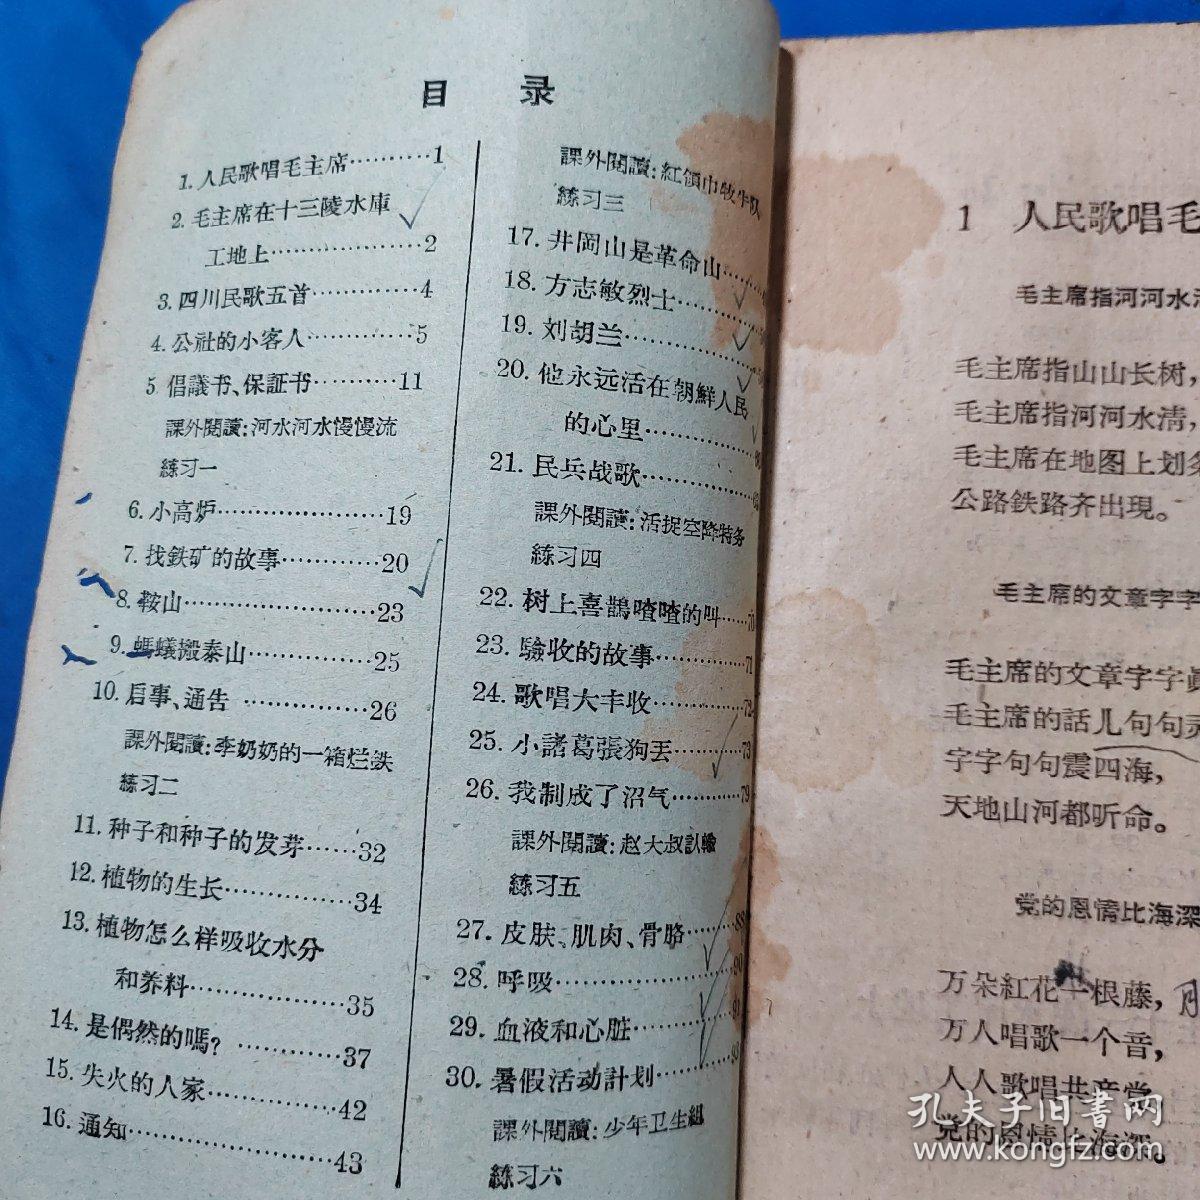 目 录
1. 人民歌唱毛主席··········1
2. 毛主席在十三陵水庫
工地上··················2
3. 四川民歌五首············4
4. 公社的小客人············5
5. 倡議书、保証书··········11
課外閱讀:河水河水慢慢流
練习一
6. 小高炉··················19
7. 找鉄矿的故事············20
8. 鞍山····················23
9. 螞蟻搬泰山··············25
10. 启事、通告··············26
課外閱讀:李奶奶的一箱烂鉄
練习二
11. 种子和种子的发芽······32
12. 植物的生长············34
13. 植物怎么样吸收水分
和养料··················35
14. 是偶然的嗎? ············37
15. 失火的人家············42
16. 通知····················43
課外閱讀:紅領巾牧牛队
練习三
17. 井岡山是革命山······
18. 方志敏烈士··········
19. 刘胡兰··············
20. 他永远活在朝鮮人民
的心里··············
21. 民兵战歌············
課外閱讀:活捉空降特务
練习四
22. 树上喜鵲喳喳的叫······70
23. 驗收的故事············71
24. 歌唱大丰收············72
25. 小諸葛張狗丟··········73
26. 我制成了沼气··········79
課外閱讀:赵大叔認輸
練习五
27. 皮肤、肌肉、骨骼······88
28. 呼吸··················90
29. 血液和心脏············91
30. 暑假活动計划··········93
課外閱讀:少年卫生組
練习六
1 人民歌唱毛
毛主席指河河水
毛主席指山山长树，
毛主席指河河水清，
毛主席在地图上划
公路鉄路齐出現。
毛主席的文章字字
毛主席的文章字字眞
毛主席的話儿句句灵
字字句句震四海，
天地山河都听命。
党的恩情比海深
万朵紅花一根藤，
万人唱歌一个音，
人人歌唱共产党，
党的恩情比海深。
孔夫子旧书网
www.kongfz.com